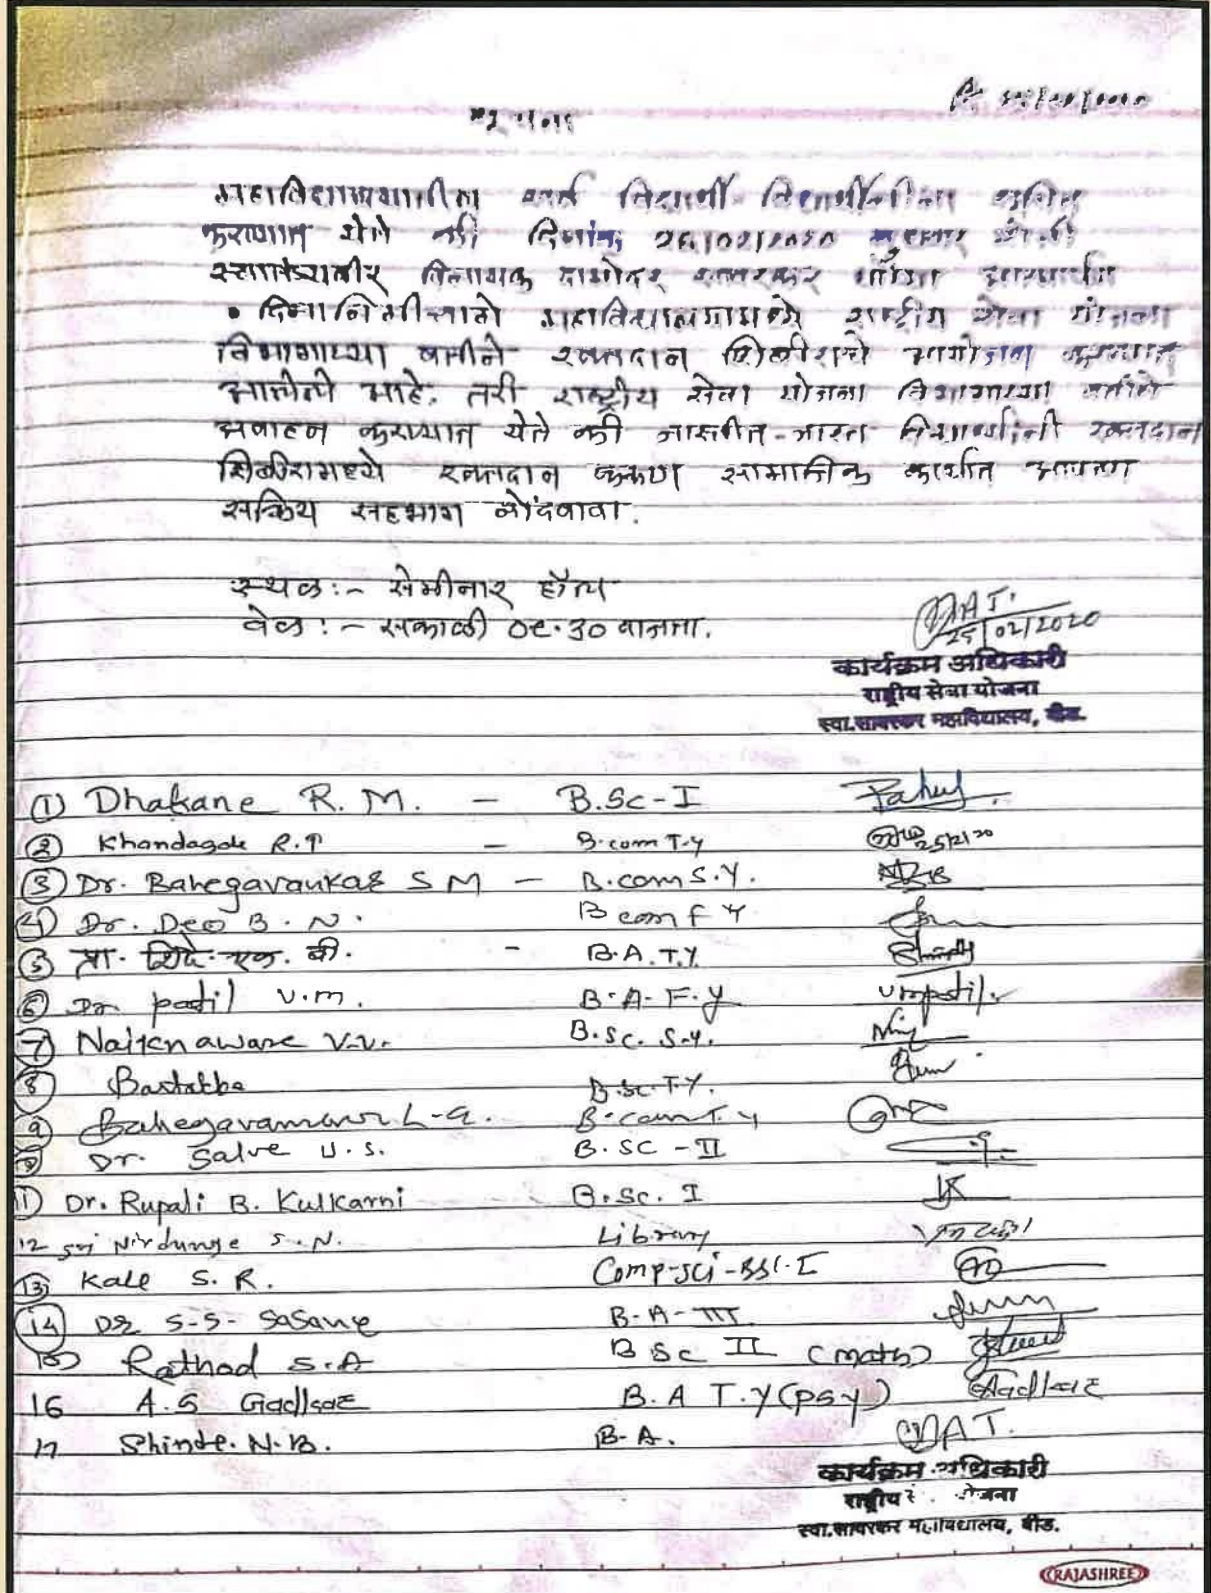 महाविद्यालयातील सर्व विद्यार्थी विद्यार्थीनींना सूचित
करण्यात येते की दिनांक 26/02/2020 बुधवार रोजी
स्वातंत्र्यवीर विनायक दामोदर सावरकर यांच्या
दिनानिमीत्ताने महाविद्यालयामध्ये राष्ट्रीय सेवा योजना
विभागाच्या वतीने रक्तदान शिबीराचे आयोजन करण्यात
आलेले आहे. तरी राष्ट्रीय सेवा योजना विभागाच्या वतीने
आवाहन करण्यात येते की जास्तीत-जास्त विद्यार्थ्यांनी रक्तदान
शिबीरामध्ये रक्तदान करून सामाजिक कार्यात आपला
सक्रिय सहभाग नोंदवावा.
स्थळ:- सेमीनार हॉल
वेळ:- सकाळी 09.30 वाजता.
25/02/2020
कार्यक्रम अधिकारी
राष्ट्रीय सेवा योजना
स्वा.सावरकर महाविद्यालय, बीड.
① Dhakane R. M. - B.Sc-I
② Khandagale R.P - B.com T.Y 25/2/20
③ Dr. Bahegavankar S M - B.com S.Y.
④ Dr. Deo B. N. B com F Y
⑤ प्रा. शिंदे एन. बी. - B.A. T.Y.
⑥ Dr patil v.m. B.A-F.Y vmpatil.
⑦ Naiknaware V.V. B.Sc. S.Y.
⑧ B.Sc. T.Y.
⑨ Bahegavankar L.G. B.com T.Y
⑩ Dr. Salve U.S. B.SC-II
⑪ Dr. Rupali B. Kulkarni B.Sc. I
12 Sri Nirdunge S.N. Library
⑬ Kale S. R. Comp-Sci-BSc-I
⑭ DR S-S- Sasane B-A-III
15 Rathod S.A B Sc II (maths)
16 A.S Gadlkar B.A T.Y (psy)
17 Shinde. N.B. B-A.
कार्यक्रम अधिकारी
राष्ट्रीय योजना
स्वा.सावरकर महाविद्यालय, बीड.
RAJASHREE